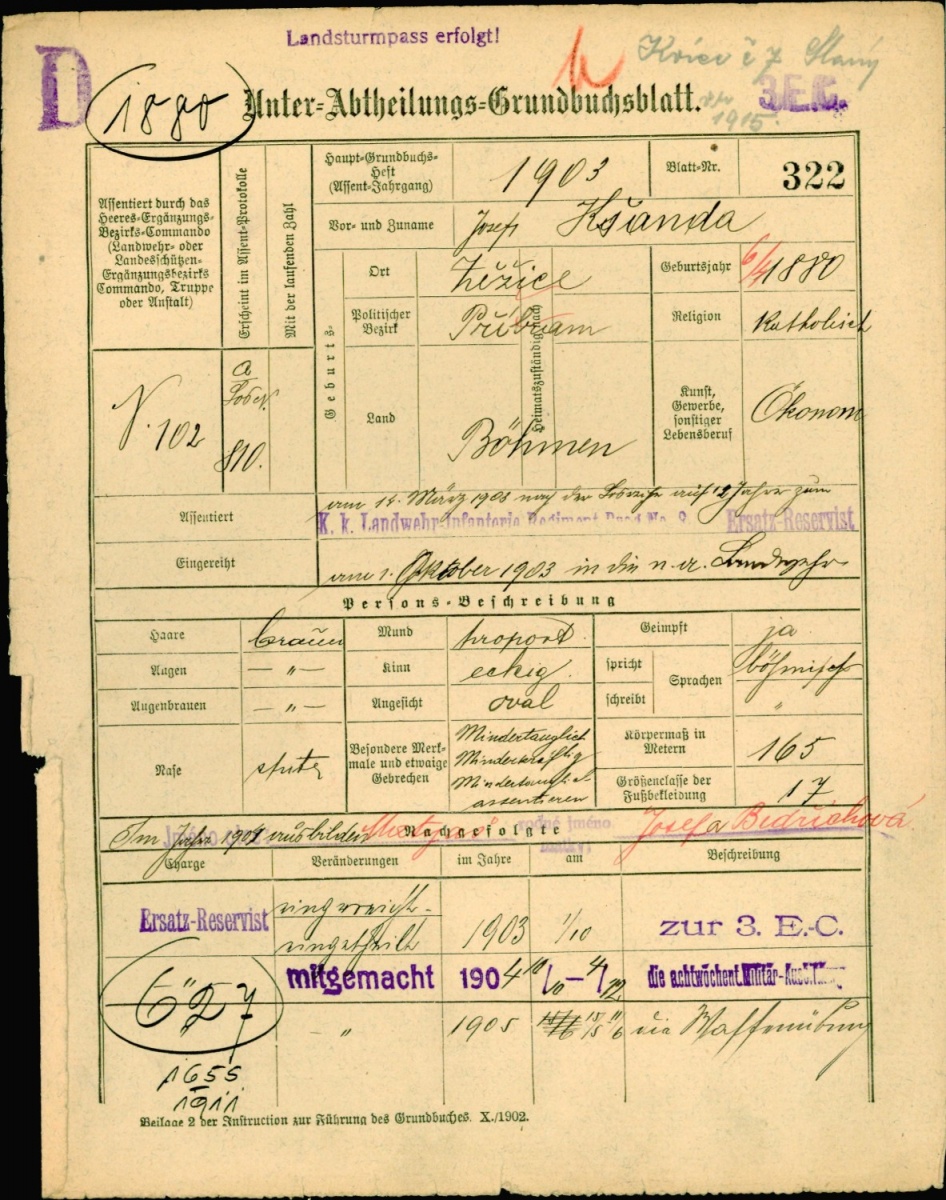 Landsturmpass erfolgt!
D
1880
Unter-Abtheilungs-Grundbuchsblatt.
Slaný
1915
3.E.C.
Assentiert durch das Heeres-Ergänzungs-Bezirks-Commando (Landwehr- oder Landesschützen-Ergänzungsbezirks Commando, Truppe oder Anstalt)
Erscheint im Assent-Protokolle
Mit der laufenden Zahl
Haupt-Grundbuchs-Heft (Assent-Jahrgang)
1903
Blatt-Nr.
322
Vor- und Zuname
Josef Kšanda
Geburts-
Ort
Žežice
Geburtsjahr
6/4 1880
Politischer Bezirk
Příbram
Heimatszuständig nach
Religion
Katholisch
Land
Böhmen
Kunst, Gewerbe, sonstiger Lebensberuf
Ökonom
N. 102
a
810.
Assentiert
am März 1903 nach der auf 12 Jahre zum
K. k. Landwehr-Infanterie Regiment Prag No. 8 Ersatz-Reservist
Eingereiht
am 1. Oktober 1903 in die Landwehr
Persons-Beschreibung
Haare
braun
Mund
proport.
Geimpft
ja
Augen
— „ —
Kinn
eckig
spricht
Sprachen
böhmisch
Augenbrauen
— „ —
Angesicht
oval
schreibt
„
Nase
spitz
Besondere Merkmale und etwaige Gebrechen
Mindertauglich
Minderkräftig
Mindertauglich
assentieren
Körpermaß in Metern
165
Größenclasse der Fußbekleidung
17
Im Jahre 1904 ausbilden
Nachgefolgte
rodné jméno
Josef a Bedřichová
Charge
Veränderungen
im Jahre
am
Beschreibung
Ersatz-Reservist
eingereicht
eingetheilt
1903
1/10
zur 3. E.-C.
mitgemacht
1904
10/10 — 4/12
die achtwöchent. Militär-Ausbildung
627
„
1905
die Waffenübung
1655
1911
Beilage 2 der Instruction zur Führung des Grundbuches. X./1902.